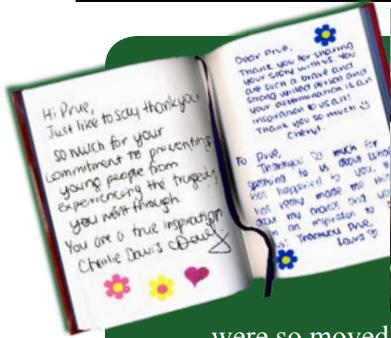 Hi Prue,
Just like to say thankyou
so much for your
commitment to preventing
young people from
experiencing the tragedy
you went through.
You are a true inspiration
Charlie Davis
Dear Prue,
Thank you for sharing
your story with us. You
are such a brave and
strong willed person and
your determination is an
inspiration to us all!
Thank you so much
Cheryl.
To Prue,
Thankyou so much for
speaking to us about what
has happened to you,
has really made me
about my choices and
an inspiration to
us! Thankyou Prue,
Laura
were so moved